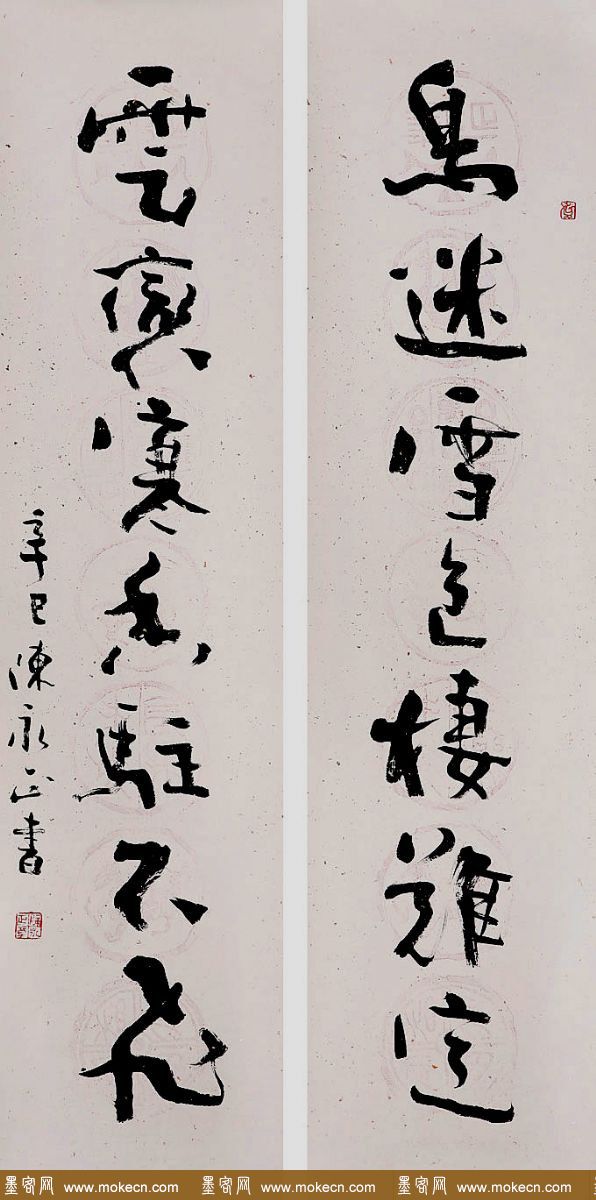 鳥迷雪色棲難定
雲裹寒香駐不飛
辛巳陳永正書
墨客网 www.mokecn.com 墨客网 www.mokecn.com 墨客网 www.mokecn.com